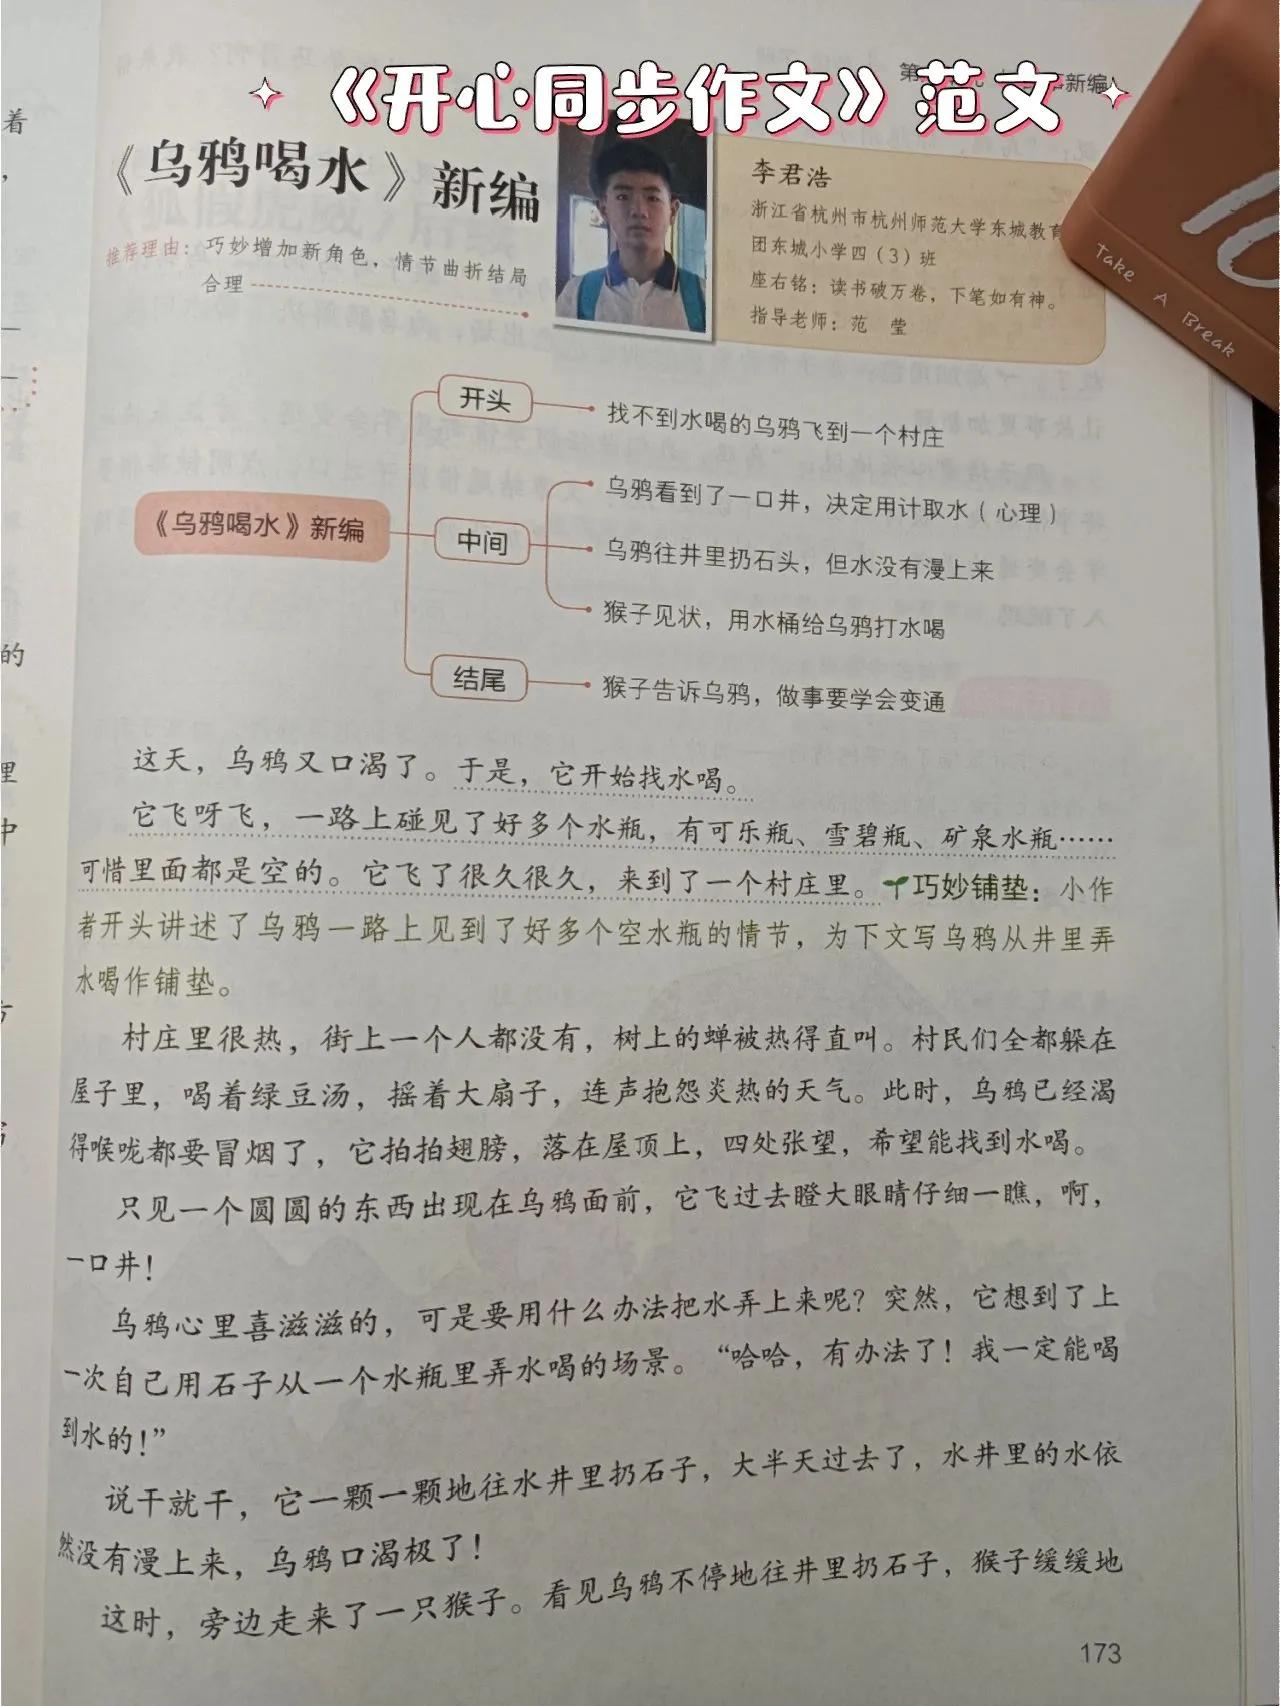 《开心同步作文》范文
新编
《乌鸦喝水》新编
推荐理由：巧妙增加新角色，情节曲折结局
合理
李君浩
浙江省杭州市杭州师范大学东城教育
团东城小学四（3）班
座右铭：读书破万卷，下笔如有神。
指导老师：范 莹
Take A Break
开头
找不到水喝的乌鸦飞到一个村庄
《乌鸦喝水》新编
中间
乌鸦看到了一口井，决定用计取水（心理）
乌鸦往井里扔石头，但水没有漫上来
猴子见状，用水桶给乌鸦打水喝
结尾
猴子告诉乌鸦，做事要学会变通
这天，乌鸦又口渴了。于是，它开始找水喝。
它飞呀飞，一路上碰见了好多个水瓶，有可乐瓶、雪碧瓶、矿泉水瓶……
可惜里面都是空的。它飞了很久很久，来到了一个村庄里。巧妙铺垫：小作
者开头讲述了乌鸦一路上见到了好多个空水瓶的情节，为下文写乌鸦从井里弄
水喝作铺垫。
村庄里很热，街上一个人都没有，树上的蝉被热得直叫。村民们全都躲在
屋子里，喝着绿豆汤，摇着大扇子，连声抱怨炎热的天气。此时，乌鸦已经渴
得喉咙都要冒烟了，它拍拍翅膀，落在屋顶上，四处张望，希望能找到水喝。
只见一个圆圆的东西出现在乌鸦面前，它飞过去瞪大眼睛仔细一瞧，啊，
一口井！
乌鸦心里喜滋滋的，可是要用什么办法把水弄上来呢？突然，它想到了上
一次自己用石子从一个水瓶里弄水喝的场景。“哈哈，有办法了！我一定能喝
到水的！”
说干就干，它一颗一颗地往水井里扔石子，大半天过去了，水井里的水依
然没有漫上来，乌鸦口渴极了！
这时，旁边走来了一只猴子。看见乌鸦不停地往井里扔石子，猴子缓缓地
173